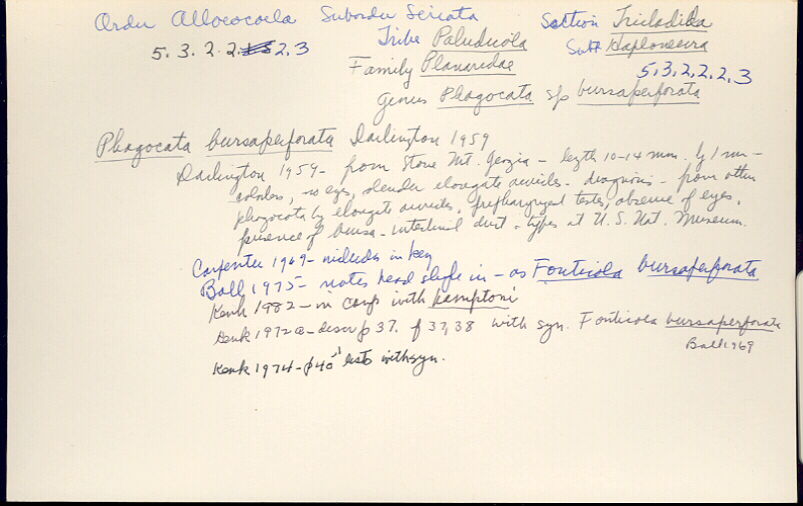 Order Alloeocoela Suborder Seriata Section Tricladida
5.3.2.2.2.3 Tribe Paludicola Subf Haploneura
Family Planaridae 5.3.2.2.2.3
Genus Phagocata sp bursaperforata
Phagocata bursaperforata Darlington 1959
Darlington 1959 - from Stone Mt. Georgia - length 10-14 mm. by 1 mm -
colorless, no eyes, slender elongate auricles - diagnosis - from other
phagocata by elongate auricles, prepharyngeal testes, absence of eyes,
presence of bursa-intestinal duct - types at U.S. Nat. Museum.
Carpenter 1969 - includes in key
Ball 1975 - notes head shape in - as Fonticola bursaperforata
Kenk 1982 - in comp with hamptoni
Kenk 1972a - descr p 37. f 37,38 with syn. Fonticola bursaperforata
Ball 1969
Kenk 1974 - p 40 lists with syn.